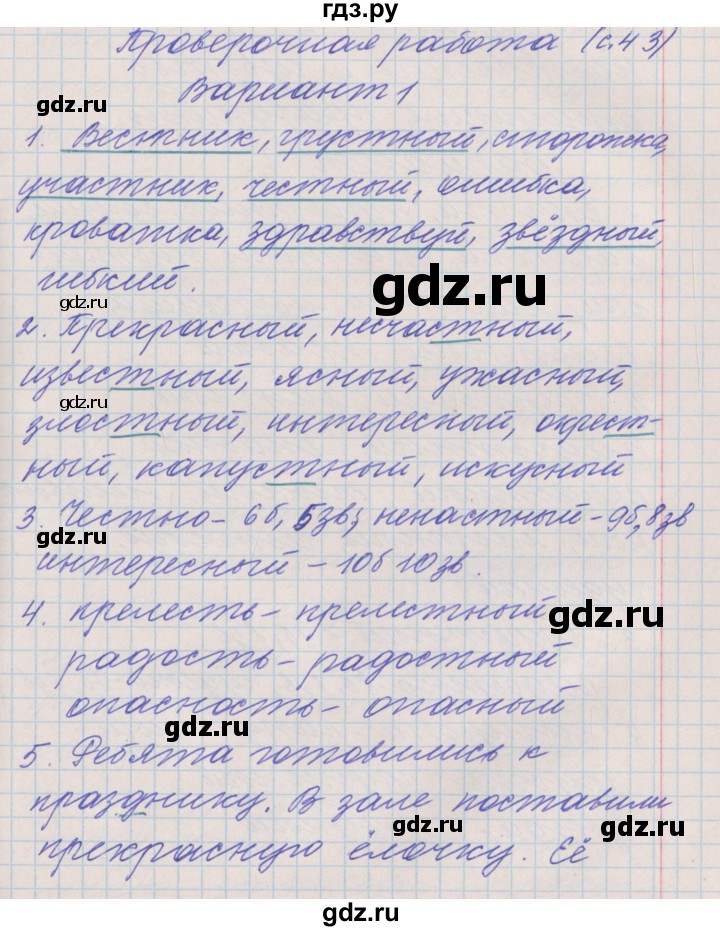 гдз.ру
Проверочная работа (с.43)
Вариант 1
gdz.ru
1. Вестник, грустный, сторожка,
gdz.ru
участник, честный, ошибка,
кроватка, здравствуй, звёздный,
гибкий.
gdz.ru
gdz.ru
2. Прекрасный, несчастный,
известный, ясный, ужасный,
gdz.ru
злостный, интересный, окрест-
ный, капустный, искусный
3. Честно - 6б, 5зв; ненастный - 9б, 8зв
gdz.ru
интересный - 10б 10зв.
4. прелесть - прелестный
gdz.ru
радость - радостный
опасность - опасный
gdz.ru
5. Ребята готовились к
празднику. В зале поставили
gdz.ru
gdz.ru
прекрасную ёлочку. Её
gdz.ru